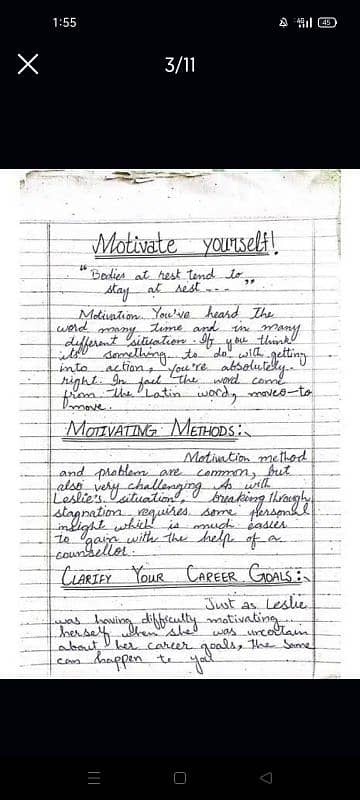 1:55
4G
45
3/11
Motivate yourself!
"Bodies at rest tend to
stay at rest --- "
Motivation. You've heard the
word many time and in many
different situation. If you think
its something to do with getting
into action, you're absolutely
right. In fact the word come
from the Latin word, moveo-to
move.
MOTIVATING METHODS:
Motivation method
and problem are common, but
also very challenging As with
Leslie's situation, breaking through
stagnation requires some personal
insight which is much easier
to gain with the help of a
counsellor.
CLARIFY YOUR CAREER GOALS:
Just as Leslie
was having difficulty motivating
herself when she was uncertain
about her career goals, the same
can happen to you